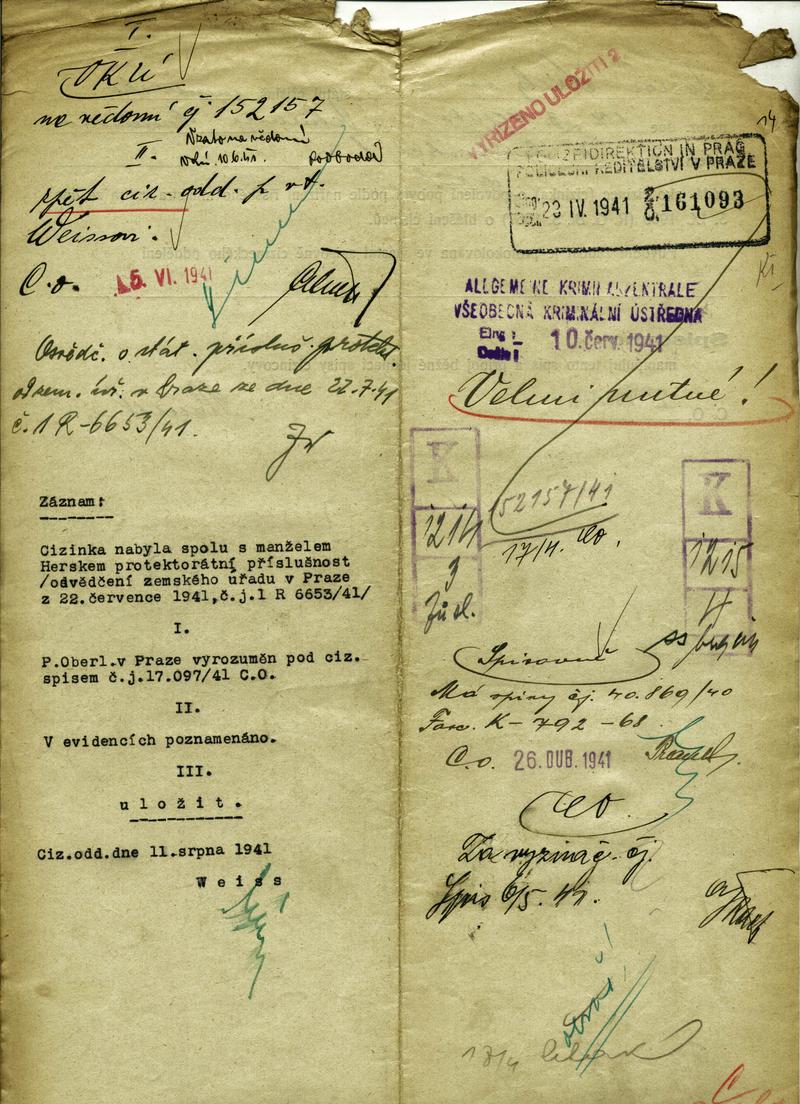 I.
OKÚ
na vědomí čj 152157
II.
Vzato na vědomí
zpět ciz. odd. p. r.
Weissovi.
C.o. 5. VI. 1941
Osvědč. o stát. přísluš. protekt.
od zem. úř. v Praze ze dne 22-7-41
č. 1 R-6653/41.
Záznam:
Cizinka nabyla spolu s manželem
Herskem protektorátní příslušnost
/odvědčení zemského úřadu v Praze
z 22.července 1941,č.j.1 R 6653/41/
I.
P.Oberl.v Praze vyrozuměn pod ciz.
spisem č.j.17.097/41 C.O.
II.
V evidencích poznamenáno.
III.
u l o ž i t .
Ciz.odd.dne 11.srpna 1941
W e i s s
VYŘÍZENO ULOŽITI 2
14
POLIZEIDIREKTION IN PRAG
POLICEJNÍ ŘEDITELSTVÍ V PRAZE
23 IV. 1941 161093
ALLGEMEINE KRIMINALZENTRALE
VŠEOBECNÁ KRIMINÁLNÍ ÚSTŘEDNA
Eing.:
Došlo: 10. červ. 1941
Velmi nutné!
K
1214
9
K
1215
4
152157/41
17/4. CO.
Spisovně
Má spisy čj. 40.869/40
Fasc. K-792-68
C.o. 26. DUB. 1941
CO.
Spis 6/5. 41.
17/4